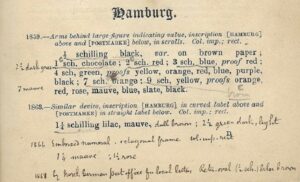 Hamburg.
1859.—Arms behind large figure indicating value, inscription [HAMBURG]
above and [POSTMARKE] below, in scrolls. Col. imp.; rect.
½ schilling black, cor. on brown paper;
1 sch. chocolate; 2 sch. red; 3 sch. blue, proof red;
2½ dark green
4 sch. green, proofs yellow, orange, red, blue, purple,
black; 7 sch. orange; 9 sch. yellow, proofs orange,
7 mauve
red, rose, mauve, blue, slate, black.
1863.—Similar device, inscription [HAMBURG] in curved label above and
[POSTMARKE] in straight label below. Col. imp.; rect.
1¼ schilling lilac, mauve, dark brown; 2½ green dark, light
1864 Embossed numeral. octagonal frame col. imp. rect
1¼ mauve ; 1½ rose
1868 North German post office for local letters. Rect. oval (½ sch) lilac brown